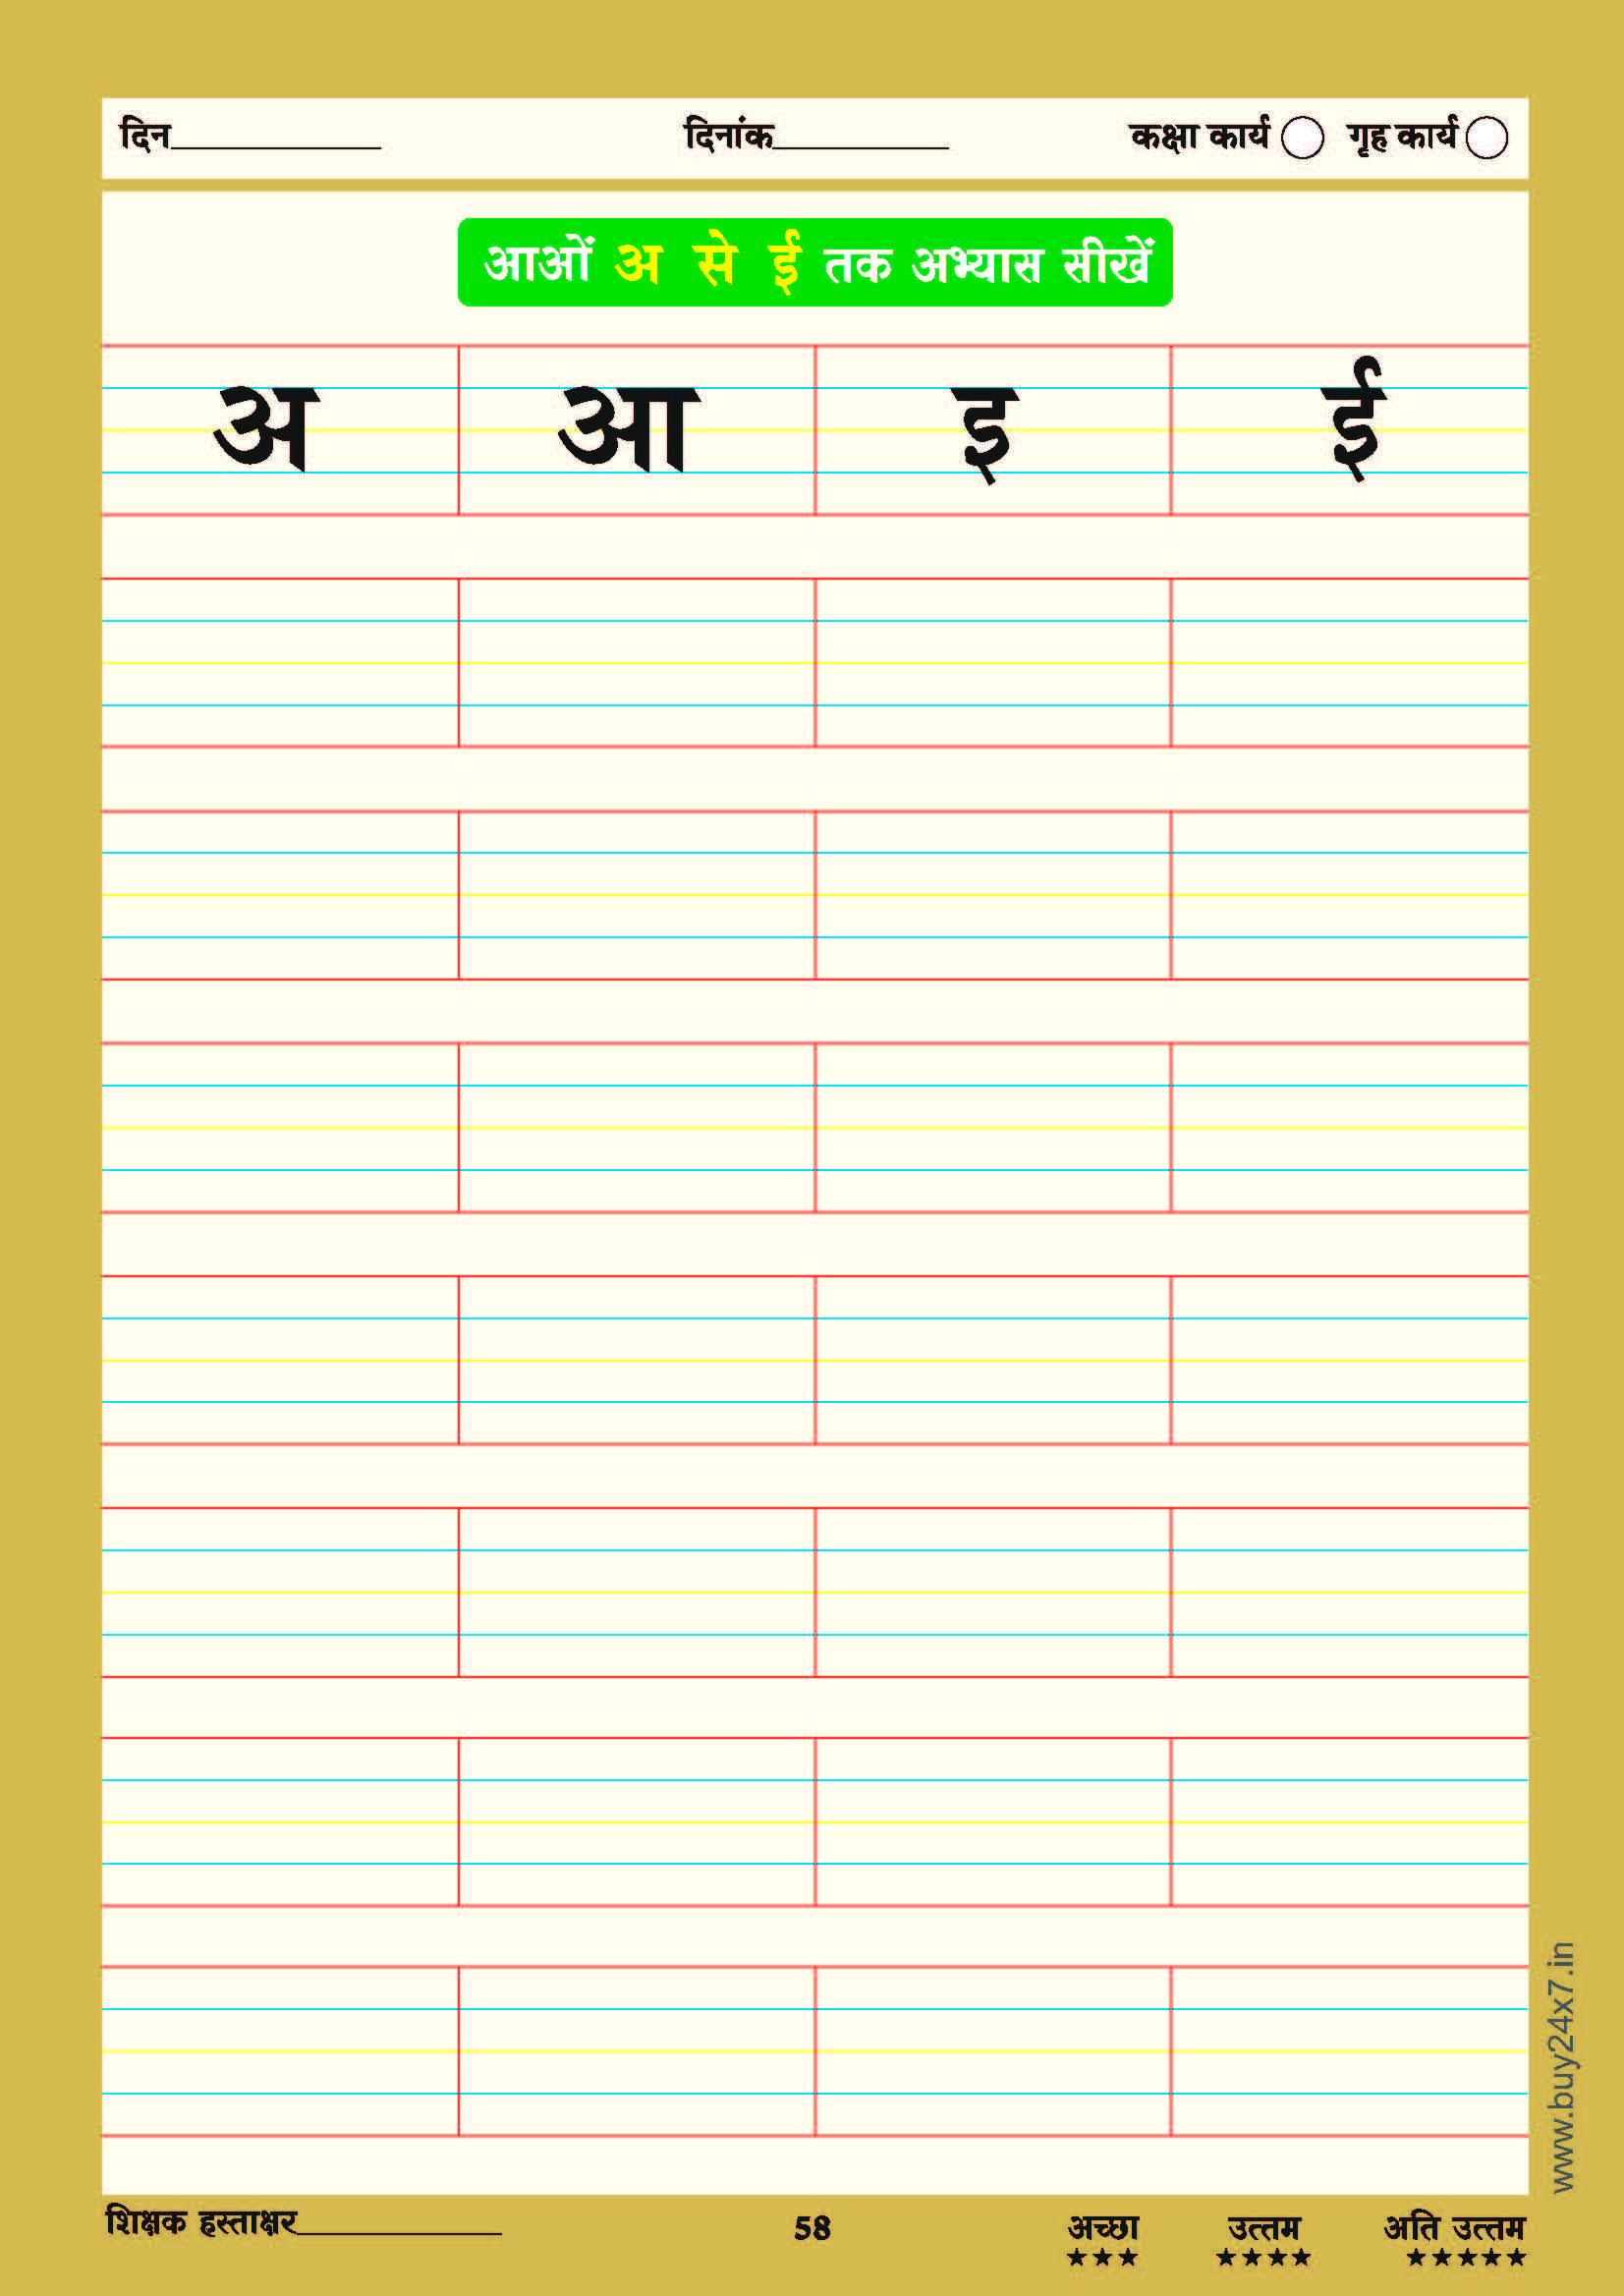 दिन____________ दिनांक__________ कक्षा कार्य गृह कार्य
आओं अ से ई तक अभ्यास सीखें
अ आ इ ई
www.buy24x7.in
शिक्षक हस्ताक्षर____________ 58 अच्छा उत्तम अति उत्तम
★★★ ★★★★ ★★★★★